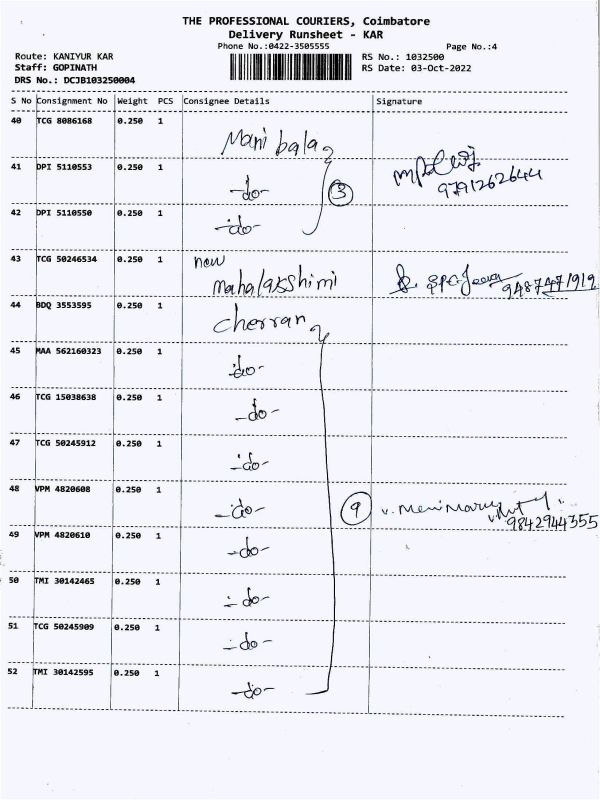 THE PROFESSIONAL COURIERS, Coimbatore
Delivery Runsheet - KAR
Phone No.:0422-3505555 Page No.:4
Route: KANIYUR KAR RS No.: 1032500
Staff: GOPINATH RS Date: 03-Oct-2022
DRS No.: DCJB103250004
S No Consignment No Weight PCS Consignee Details Signature
40 TCG 8086168 0.250 1 Mani bala
41 DPI 5110553 0.250 1 -do- 3 9791262644
42 DPI 5110550 0.250 1 -do-
43 TCG 50246534 0.250 1 new
mahalasshimi 9487471919
44 BDQ 3553595 0.250 1 cherran
45 MAA 562160323 0.250 1 -do-
46 TCG 15038638 0.250 1 -do-
47 TCG 50245912 0.250 1 -do-
48 VPM 4820608 0.250 1 -do- 9 9842944355
49 VPM 4820610 0.250 1 -do-
50 TMI 30142465 0.250 1 -do-
51 TCG 50245909 0.250 1 -do-
52 TMI 30142595 0.250 1 -do-